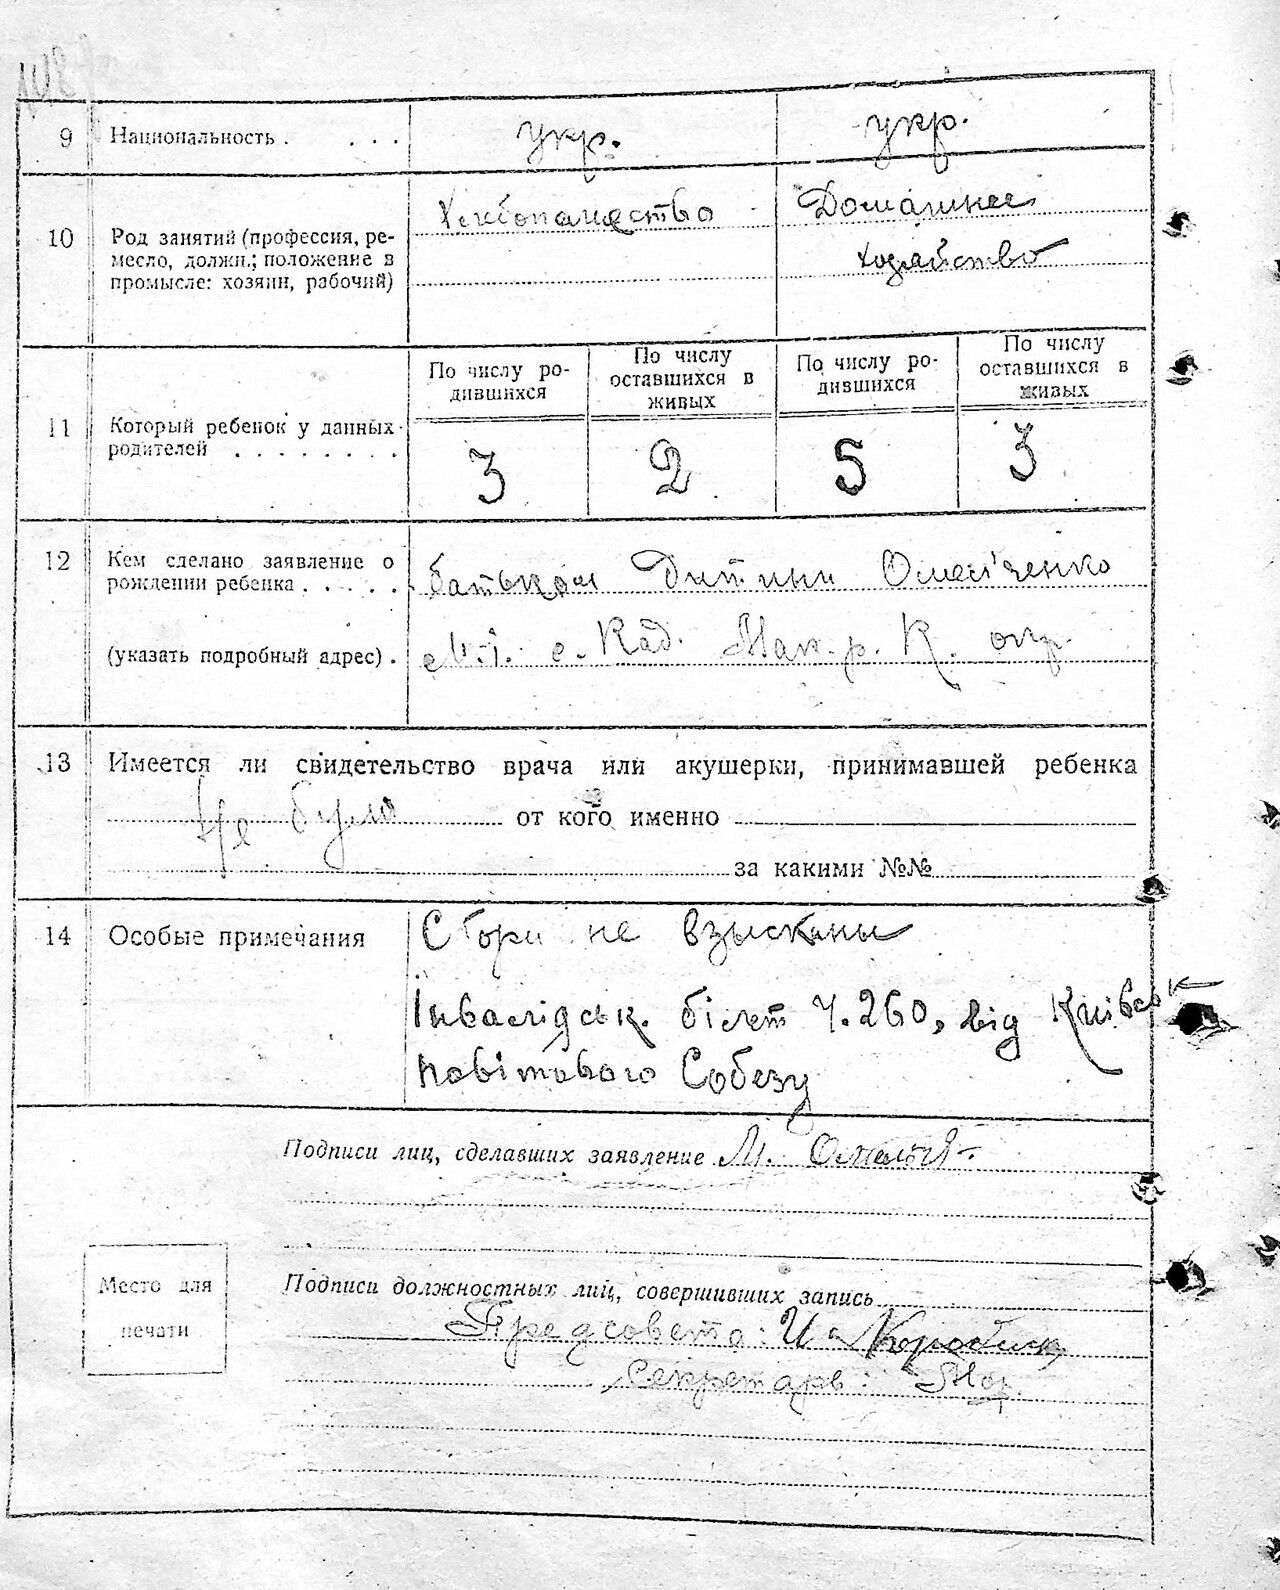 9 Национальность . . . . укр. укр.
Хлебопашество Домашнее
10 Род занятий (профессия, ре-
месло, должн.; положение в хозяйство
промысле: хозяин, рабочий)
По числу ро-
дившихся
По числу
оставшихся в
живых
По числу ро-
дившихся
По числу
оставшихся в
живых
11 Который ребенок у данных
родителей . . . . . . . . 3 2 5 3
12 Кем сделано заявление о
рождении ребенка . . . . . батьком Дитини
(указать подробный адрес) . с. Кад. Мак. р. К. окр.
13 Имеется ли свидетельство врача или акушерки, принимавшей ребенка
Не було от кого именно
за какими №№
14 Особые примечания Сбори не взысканы
Інвалідськ. білет Ч. 260, від Київськ
повітового Собезу
Подписи лиц, сделавших заявление
Подписи должностных лиц, совершивших запись
Место для
печати
Предсовета: И.
Секретарь: